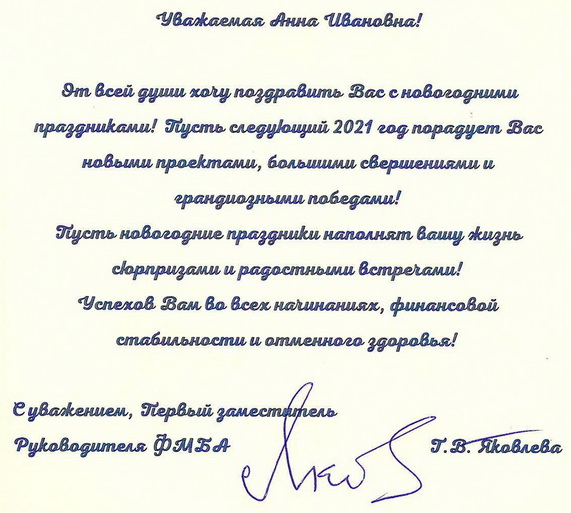 Уважаемая Анна Ивановна!
От всей души хочу поздравить Вас с новогодними
праздниками! Пусть следующий 2021 год порадует Вас
новыми проектами, большими свершениями и
грандиозными победами!
Пусть новогодние праздники наполнят вашу жизнь
сюрпризами и радостными встречами!
Успехов Вам во всех начинаниях, финансовой
стабильности и отменного здоровья!
С уважением, Первый заместитель
Руководителя ФМБА Г.В. Яковлева